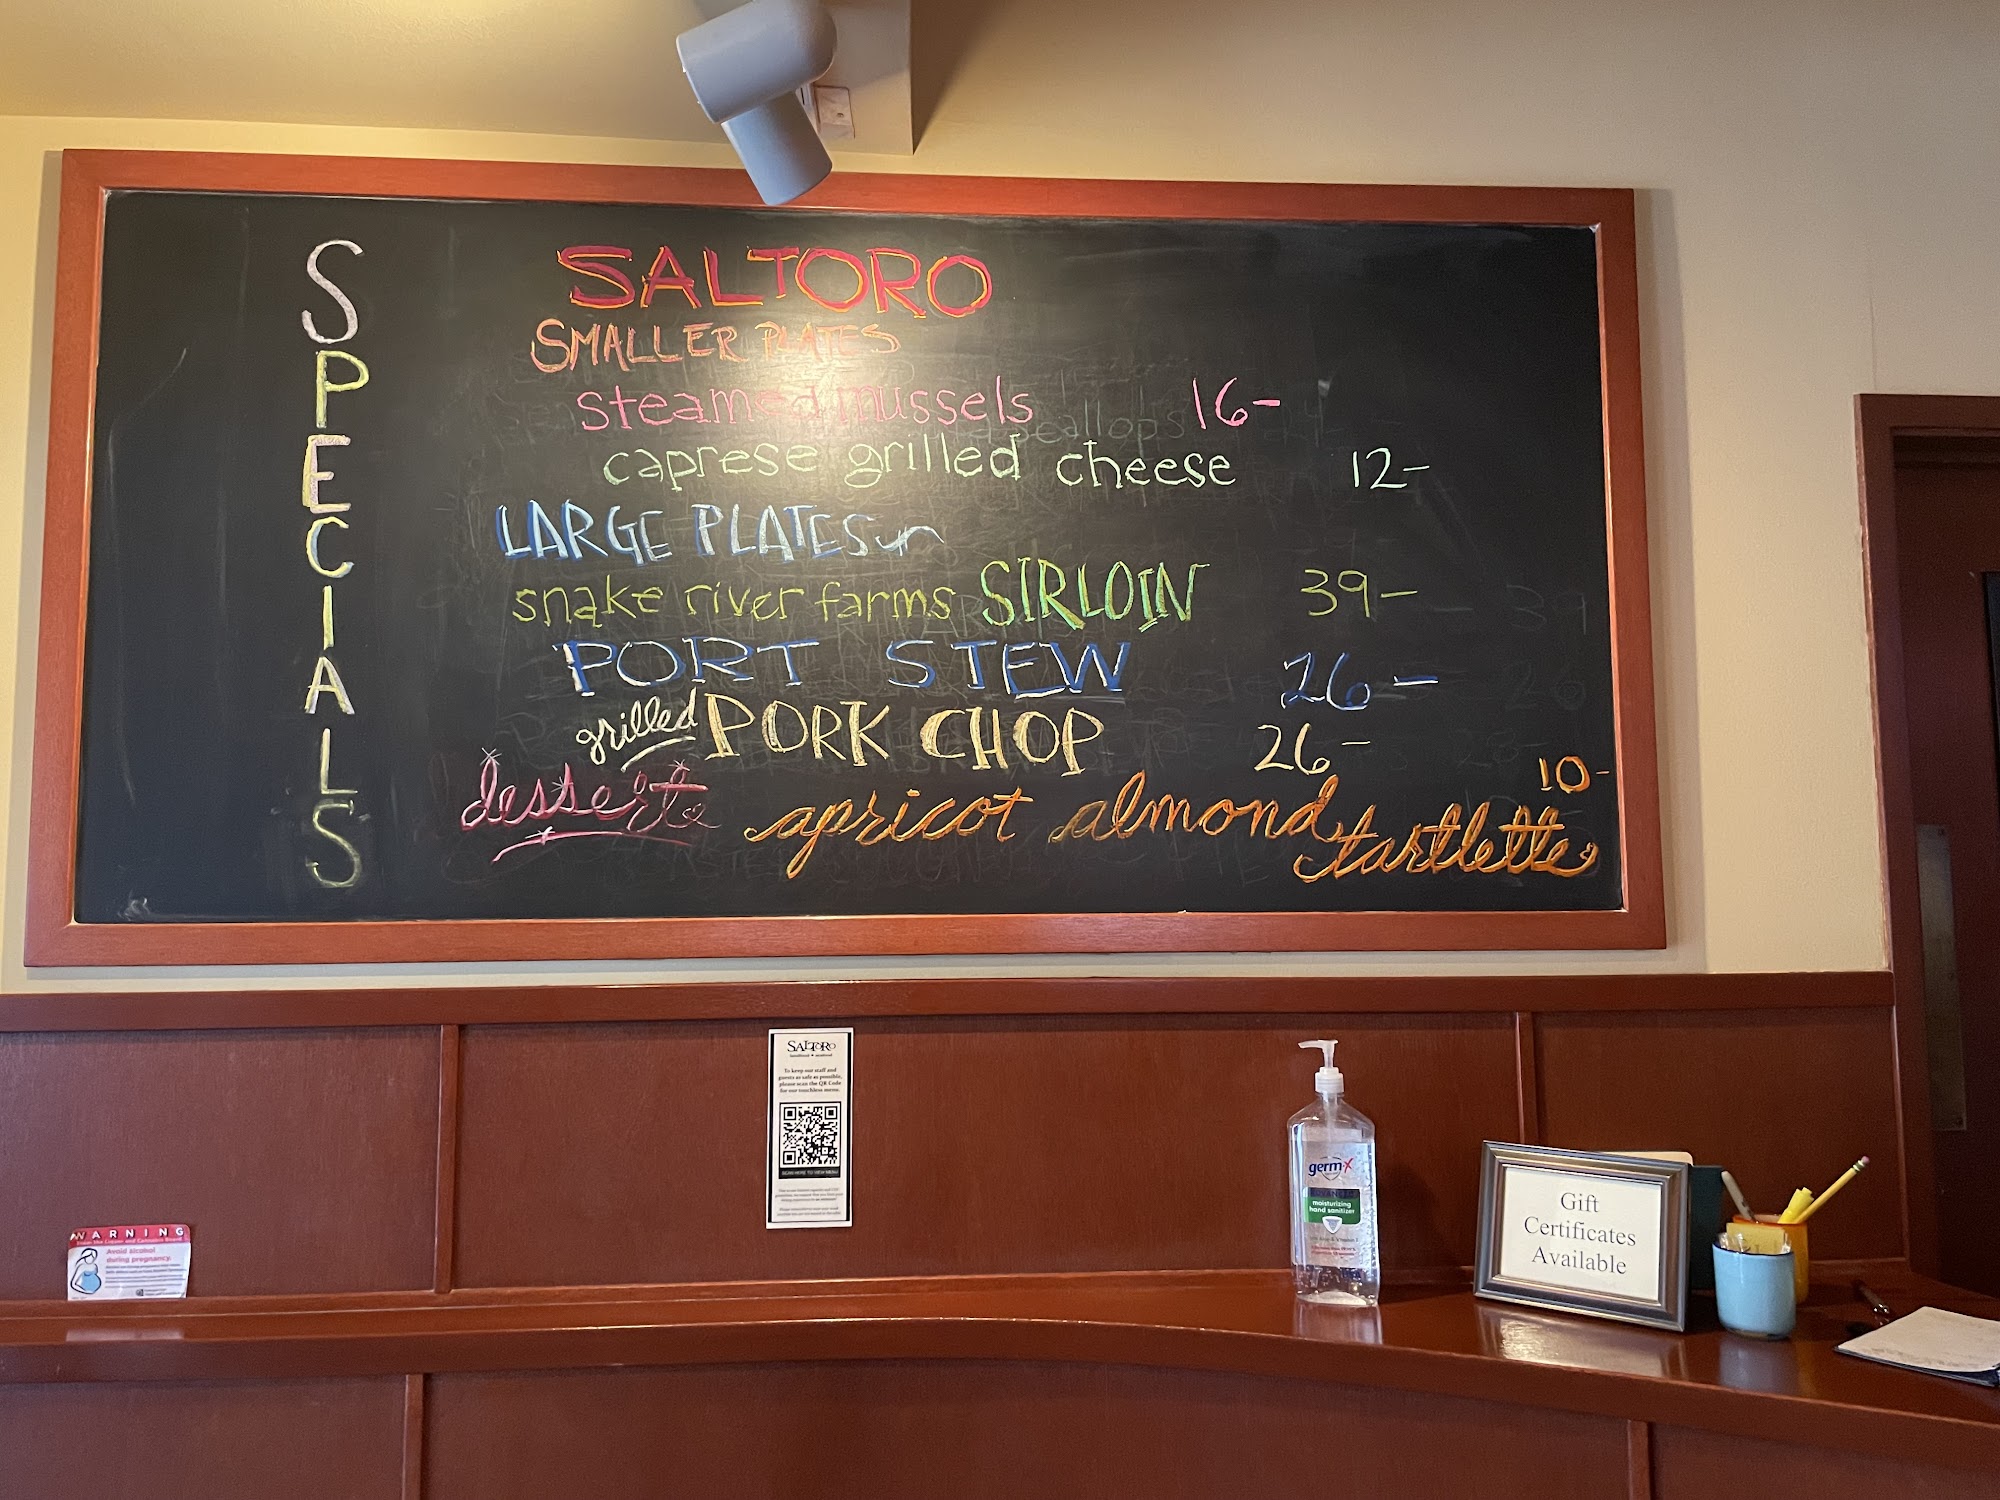 SPECIALS
SALTORO
SMALLER PLATES
steamed mussels 16-
caprese grilled cheese 12-
LARGE PLATES
snake river farms SIRLOIN 39-
PORT STEW 26-
grilled PORK CHOP 26-
desserts apricot almond tartlette 10-
SALTORO
To keep our staff and
guests as safe as possible,
please scan the QR Code
for our touchless menu.
SCAN HERE TO VIEW MENU
germ-x
ADVANCED
moisturizing
hand sanitizer
Gift
Certificates
Available
WARNING
Avoid alcohol
during pregnancy.